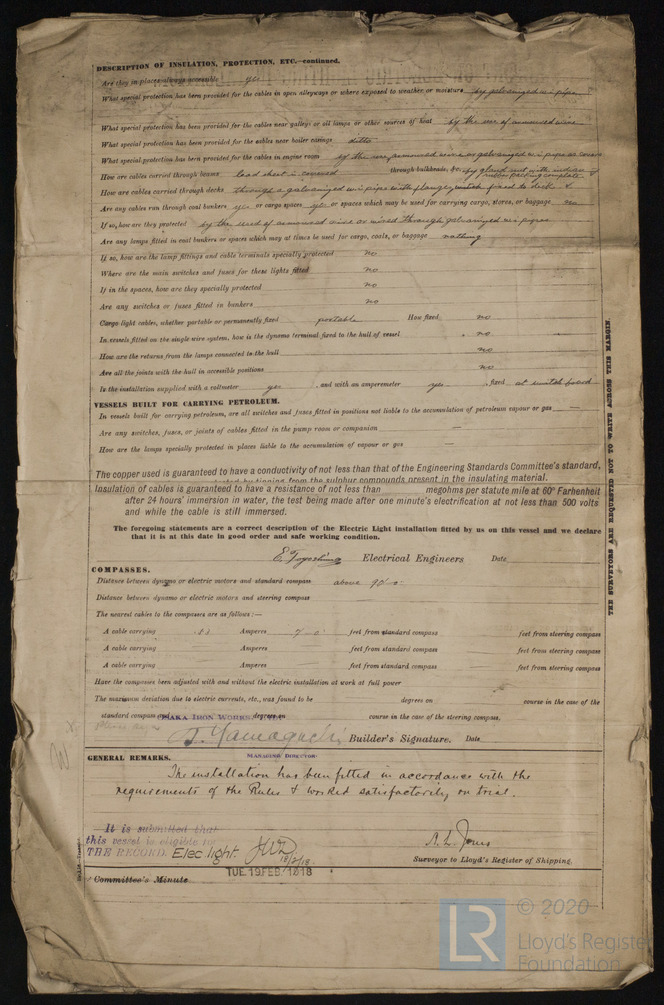 DESCRIPTION OF INSULATION, PROTECTION, ETC.—continued.
Are they in places always accessible yes
What special protection has been provided for the cables in open alleyways or where exposed to weather or moisture by galvanized w i pipe
What special protection has been provided for the cables near galleys or oil lamps or other sources of heat by the use of armoured wire
What special protection has been provided for the cables near boiler casings ditto
What special protection has been provided for the cables in engine room by the use armoured wire or galvanized w i pipe
How are cables carried through beams lead through bulkheads, &c. by gland
How are cables carried through decks through a galvanized w i pipe with flange fixed to deck &
Are any cables run through coal bunkers yes or cargo spaces yes or spaces which may be used for carrying cargo, stores, or baggage no
If so, how are they protected by the used of armoured wire or through galvanized w i pipes
Are any lamps fitted in coal bunkers or spaces which may at times be used for cargo, coals, or baggage nothing
If so, how are the lamp fittings and cable terminals specially protected no
Where are the main switches and fuses for these lights fitted no
If in the spaces, how are they specially protected no
Are any switches or fuses fitted in bunkers no
Cargo light cables, whether portable or permanently fixed portable How fixed no
In vessels fitted on the single wire system, how is the dynamo terminal fixed to the hull of vessel no
How are the returns from the lamps connected to the hull no
Are all the joints with the hull in accessible positions no
Is the installation supplied with a voltmeter yes , and with an amperemeter yes , fixed at switch board
VESSELS BUILT FOR CARRYING PETROLEUM.
In vessels built for carrying petroleum, are all switches and fuses fitted in positions not liable to the accumulation of petroleum vapour or gas —
Are any switches, fuses, or joints of cables fitted in the pump room or companion —
How are the lamps specially protected in places liable to the accumulation of vapour or gas —
The copper used is guaranteed to have a conductivity of not less than that of the Engineering Standards Committee's standard,
from the sulphur compounds present in the insulating material.
Insulation of cables is guaranteed to have a resistance of not less than megohms per statute mile at 60° Farhenheit
after 24 hours' immersion in water, the test being made after one minute's electrification at not less than 500 volts
and while the cable is still immersed.
The foregoing statements are a correct description of the Electric Light installation fitted by us on this vessel and we declare
that it is at this date in good order and safe working condition.
Electrical Engineers Date
COMPASSES.
Distance between dynamo or electric motors and standard compass above 90'
Distance between dynamo or electric motors and steering compass
The nearest cables to the compasses are as follows:—
A cable carrying Amperes feet from standard compass feet from steering compass
A cable carrying Amperes feet from standard compass feet from steering compass
A cable carrying Amperes feet from standard compass feet from steering compass
Have the compasses been adjusted with and without the electric installation at work at full power
The maximum deviation due to electric currents, etc., was found to be degrees on course in the case of the
standard compass degrees on course in the case of the steering compass.
OSAKA IRON WORKS
Yamaguchi Builder's Signature. Date
MANAGING DIRECTOR
GENERAL REMARKS.
The installation has been fitted in accordance with the
requirements of the Rules & worked satisfactorily on trial.
It is submitted that
this vessel is eligible for
THE RECORD. Elec light. 18/2/18.
Surveyor to Lloyd's Register of Shipping.
TUE. 19 FEB 1918
Committee's Minute
THE SURVEYORS ARE REQUESTED NOT TO WRITE ACROSS THIS MARGIN.
© 2020
LR
Lloyd's Register
Foundation